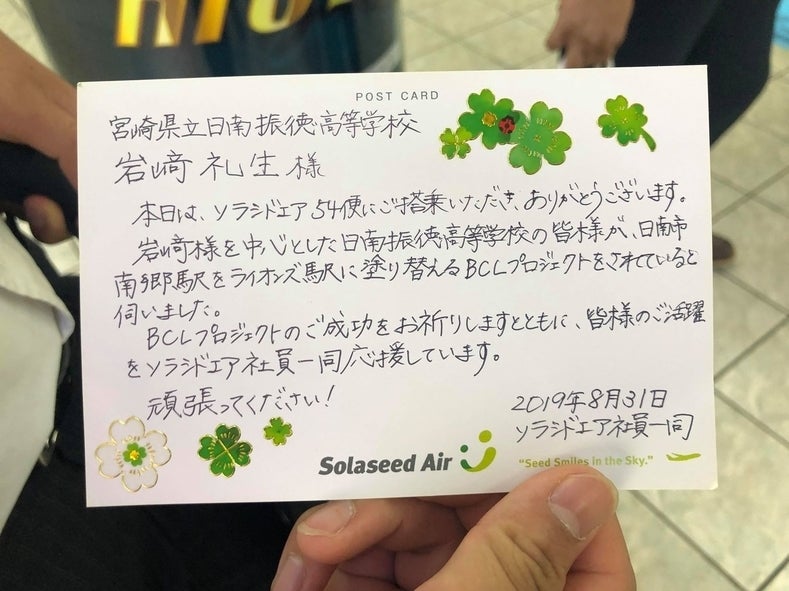 POST CARD
宮崎県立日南振徳高等学校
岩﨑 礼生 様
本日は、ソラシドエア54便にご搭乗いただき、ありがとうございます。
岩﨑様を中心とした日南振徳高等学校の皆様が、日南市
南郷駅をライオンズ駅に塗り替えるBCLプロジェクトをされていると
伺いました。
BCLプロジェクトのご成功をお祈りしますとともに、皆様のご活躍
をソラシドエア社員一同応援しています。
頑張ってください!
2019年8月31日
ソラシドエア社員一同
Solaseed Air
"Seed Smiles in the Sky."